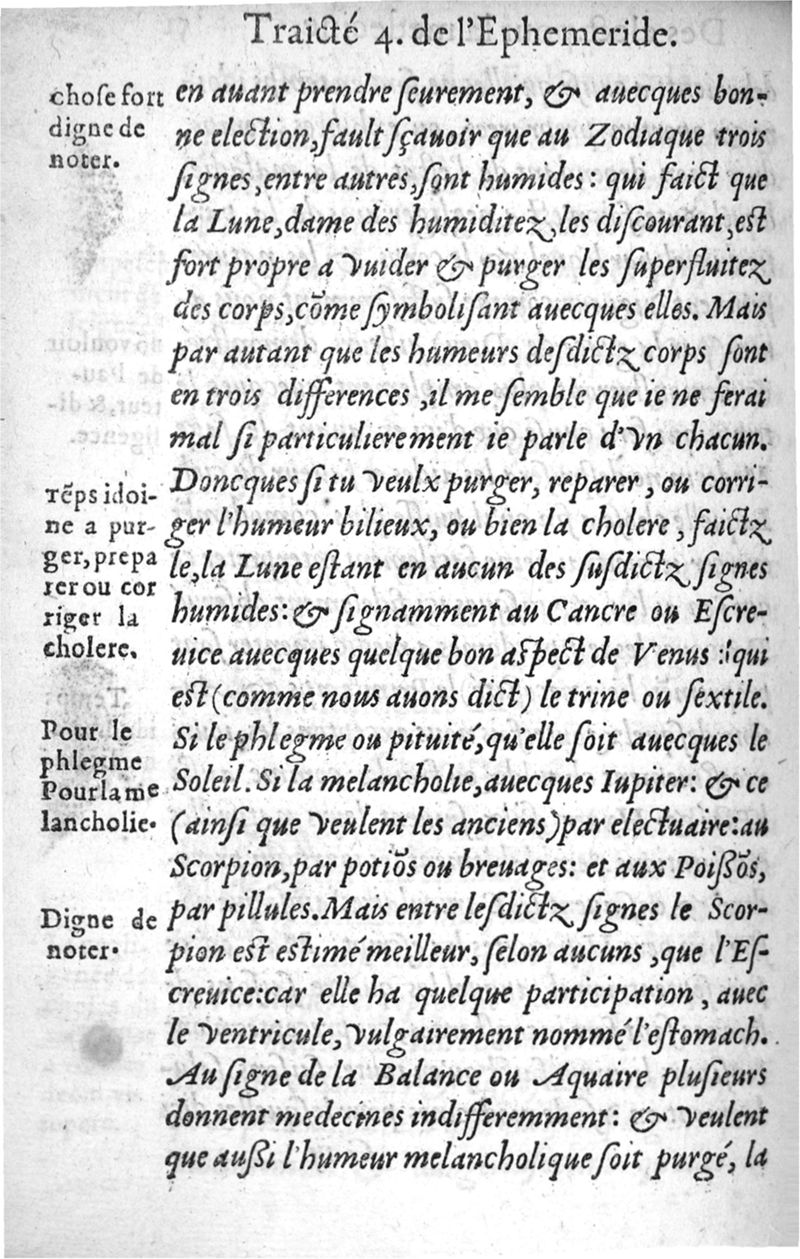 Traicté 4. de l'Ephemeride.
choſe fort
digne de
noter.
en auant prendre ſeurement, & auecques bon-
ne election, fault ſçauoir que au Zodiaque trois
ſignes, entre autres, ſont humides: qui faict que
la Lune, dame des humiditez, les diſcourant, eſt
fort propre a vuider & purger les ſuperfluitez
des corps, cõme ſymboliſant auecques elles. Mais
par autant que les humeurs deſdictz corps ſont
en trois differences, il me ſemble que ie ne ferai
mal ſi particulierement ie parle d'vn chacun.
Tẽps idoi-
ne a pur-
ger, prepa
rer ou cor
riger la
cholere.
Doncques ſi tu veulx purger, reparer, ou corri-
ger l'humeur bilieux, ou bien la cholere, faictz
le, la Lune eſtant en aucun des ſuſdictz ſignes
humides: & ſignamment au Cancre ou Eſcre-
uice auecques quelque bon aſpect de Venus: qui
eſt (comme nous auons dict) le trine ou ſextile.
Pour le
phlegme
Pour la me
lancholie.
Si le phlegme ou pituité, qu'elle ſoit auecques le
Soleil. Si la melancholie, auecques Iupiter: & ce
(ainſi que veulent les anciens) par electuaire: au
Scorpion, par potiõs ou breuages: et aux Poiſſõs,
Digne de
noter.
par pillules. Mais entre leſdictz ſignes le Scor-
pion eſt eſtimé meilleur, ſelon aucuns, que l'Eſ-
creuice: car elle ha quelque participation, auec
le ventricule, vulgairement nommé l'eſtomach.
Au ſigne de la Balance ou Aquaire pluſieurs
donnent medecines indifferemment: & veulent
que auſſi l'humeur melancholique ſoit purgé, la